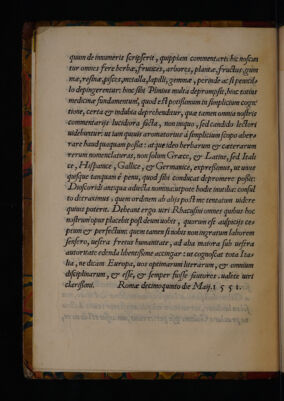 quum de innumeris scripserit, quippiam commentarii: hic noscun
tur omnes ferè herbæ, frutices, arbores, plantæ, fructus, gum
mæ, resinæ, pisces, metalla, lapilli, gemmæ, perinde ac si penicil-
lo depingerentur: hoc sibi Plinius multa deprompsit, hoc totius
medicinæ fundamentum, quod est potissimum in simplicium cogni
tione, certa & indubia deprehenditur, quæ tamen omnia nostris
commentariis lucidiora facta, non iniquo, sed candido lectori
uidebuntur: ut tam quouis aromatarius à simplicium scopo aber-
rare haud quaquam possit: at que ideo herbarum & cæterarum
rerum nomenclaturas, non solum Græce, & Latine, sed Itali
ce, Hispanice, Gallice, & Germanice, expressimus, ut unus
quisque tanquam è penu, quod sibi conducat depromere possit:
Dioscoridi antiqua adiecta nomina: utpote hodie inutilia: consul
to detraximus, quem ordinem ab aliis post me tentatum uidere
quiuis poterit. Debeant ergo uiri Rhacusini omnes quibus hoc
nostrum opus placebit post deum uobis, quorum est auspiciis cœ
ptum & perfectum: quem tamen si nobis non ingratum laborem
sensero, uestra fretus humanitate, ad alia maiora sub uestra
autoritate edenda libentissime accingar: ut cognoscat tota Ita
lia, ne dicam Europa, uos optimarum literarum, & omnium
disciplinarum, & esse, & semper fuisse fautores. ualete uiri
clarissimi. Romæ decimoquinto die Maij. 1551.